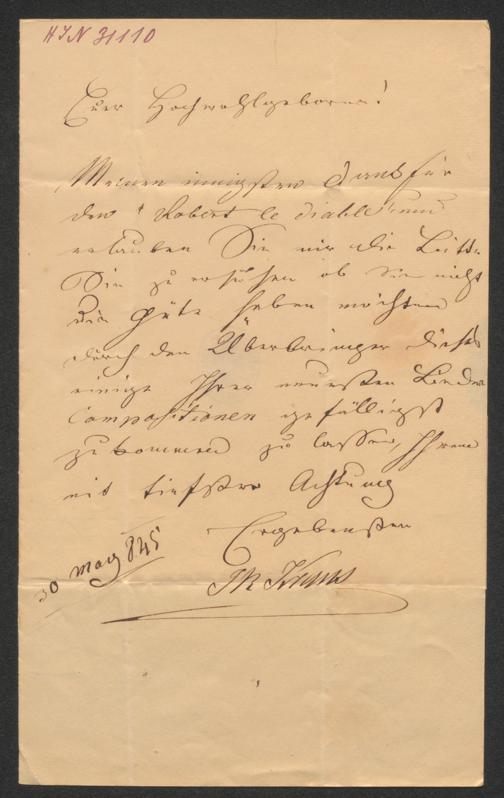 HIN 31110
Euer Hochwohlgeboren!
Meinen innigsten Dank für
den "Robert le diable" und
erlauben Sie mir die Bitte
Sie zu ersuchen ob Sie nicht
die Güte haben möchten
durch den Überbringer dieses
einige Ihrer neuesten Lieder
Compositionen gefälligst
zukommen zu lassen, Ihrem
mit tiefster Achtung
Ergebensten
30 may 845